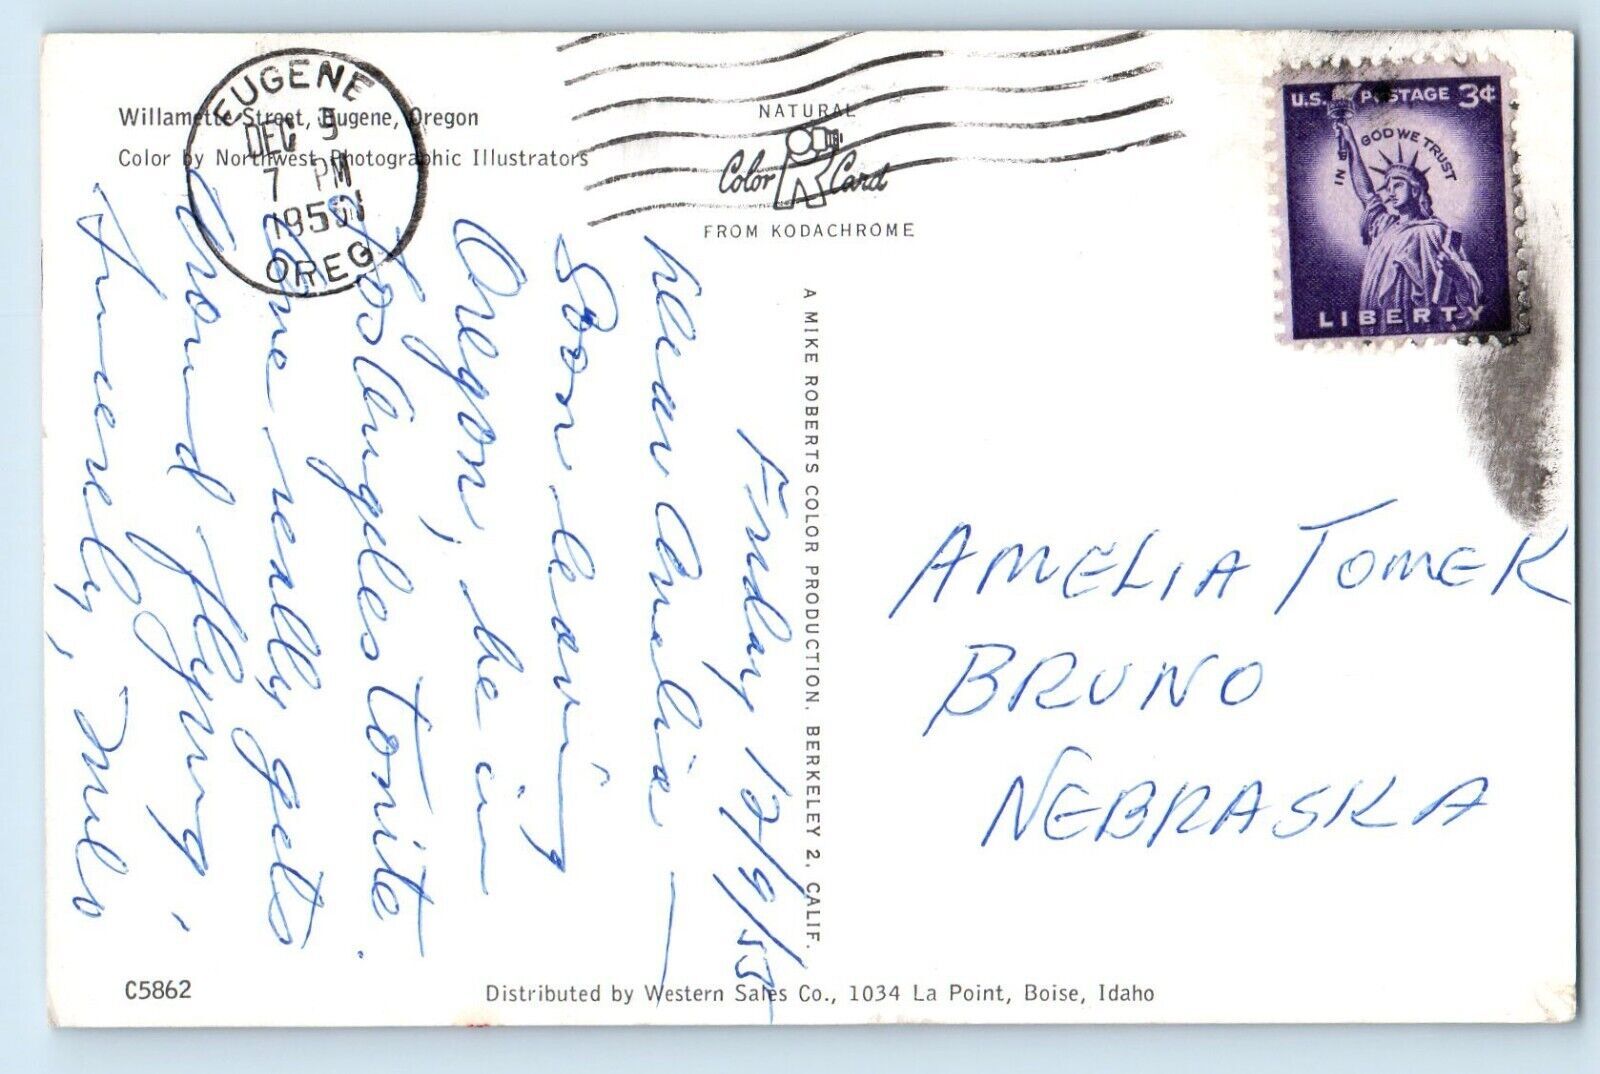 Willamette Street, Eugene, Oregon
Color by Northwest Photographic Illustrators
EUGENE
DEC 9
7 PM
195
OREG
NATURAL
Color Card
FROM KODACHROME
U.S. POSTAGE 3¢
IN GOD WE TRUST
LIBERTY
Friday 12/9/55
Dear Amelia —
Soon leaving
Oregon, be in
Los Angeles tonite.
One really gets
around flying.
Sincerely, Milo
A MIKE ROBERTS COLOR PRODUCTION, BERKELEY 2, CALIF.
AMELIA TOMEK
BRUNO
NEBRASKA
C5862
Distributed by Western Sales Co., 1034 La Point, Boise, Idaho